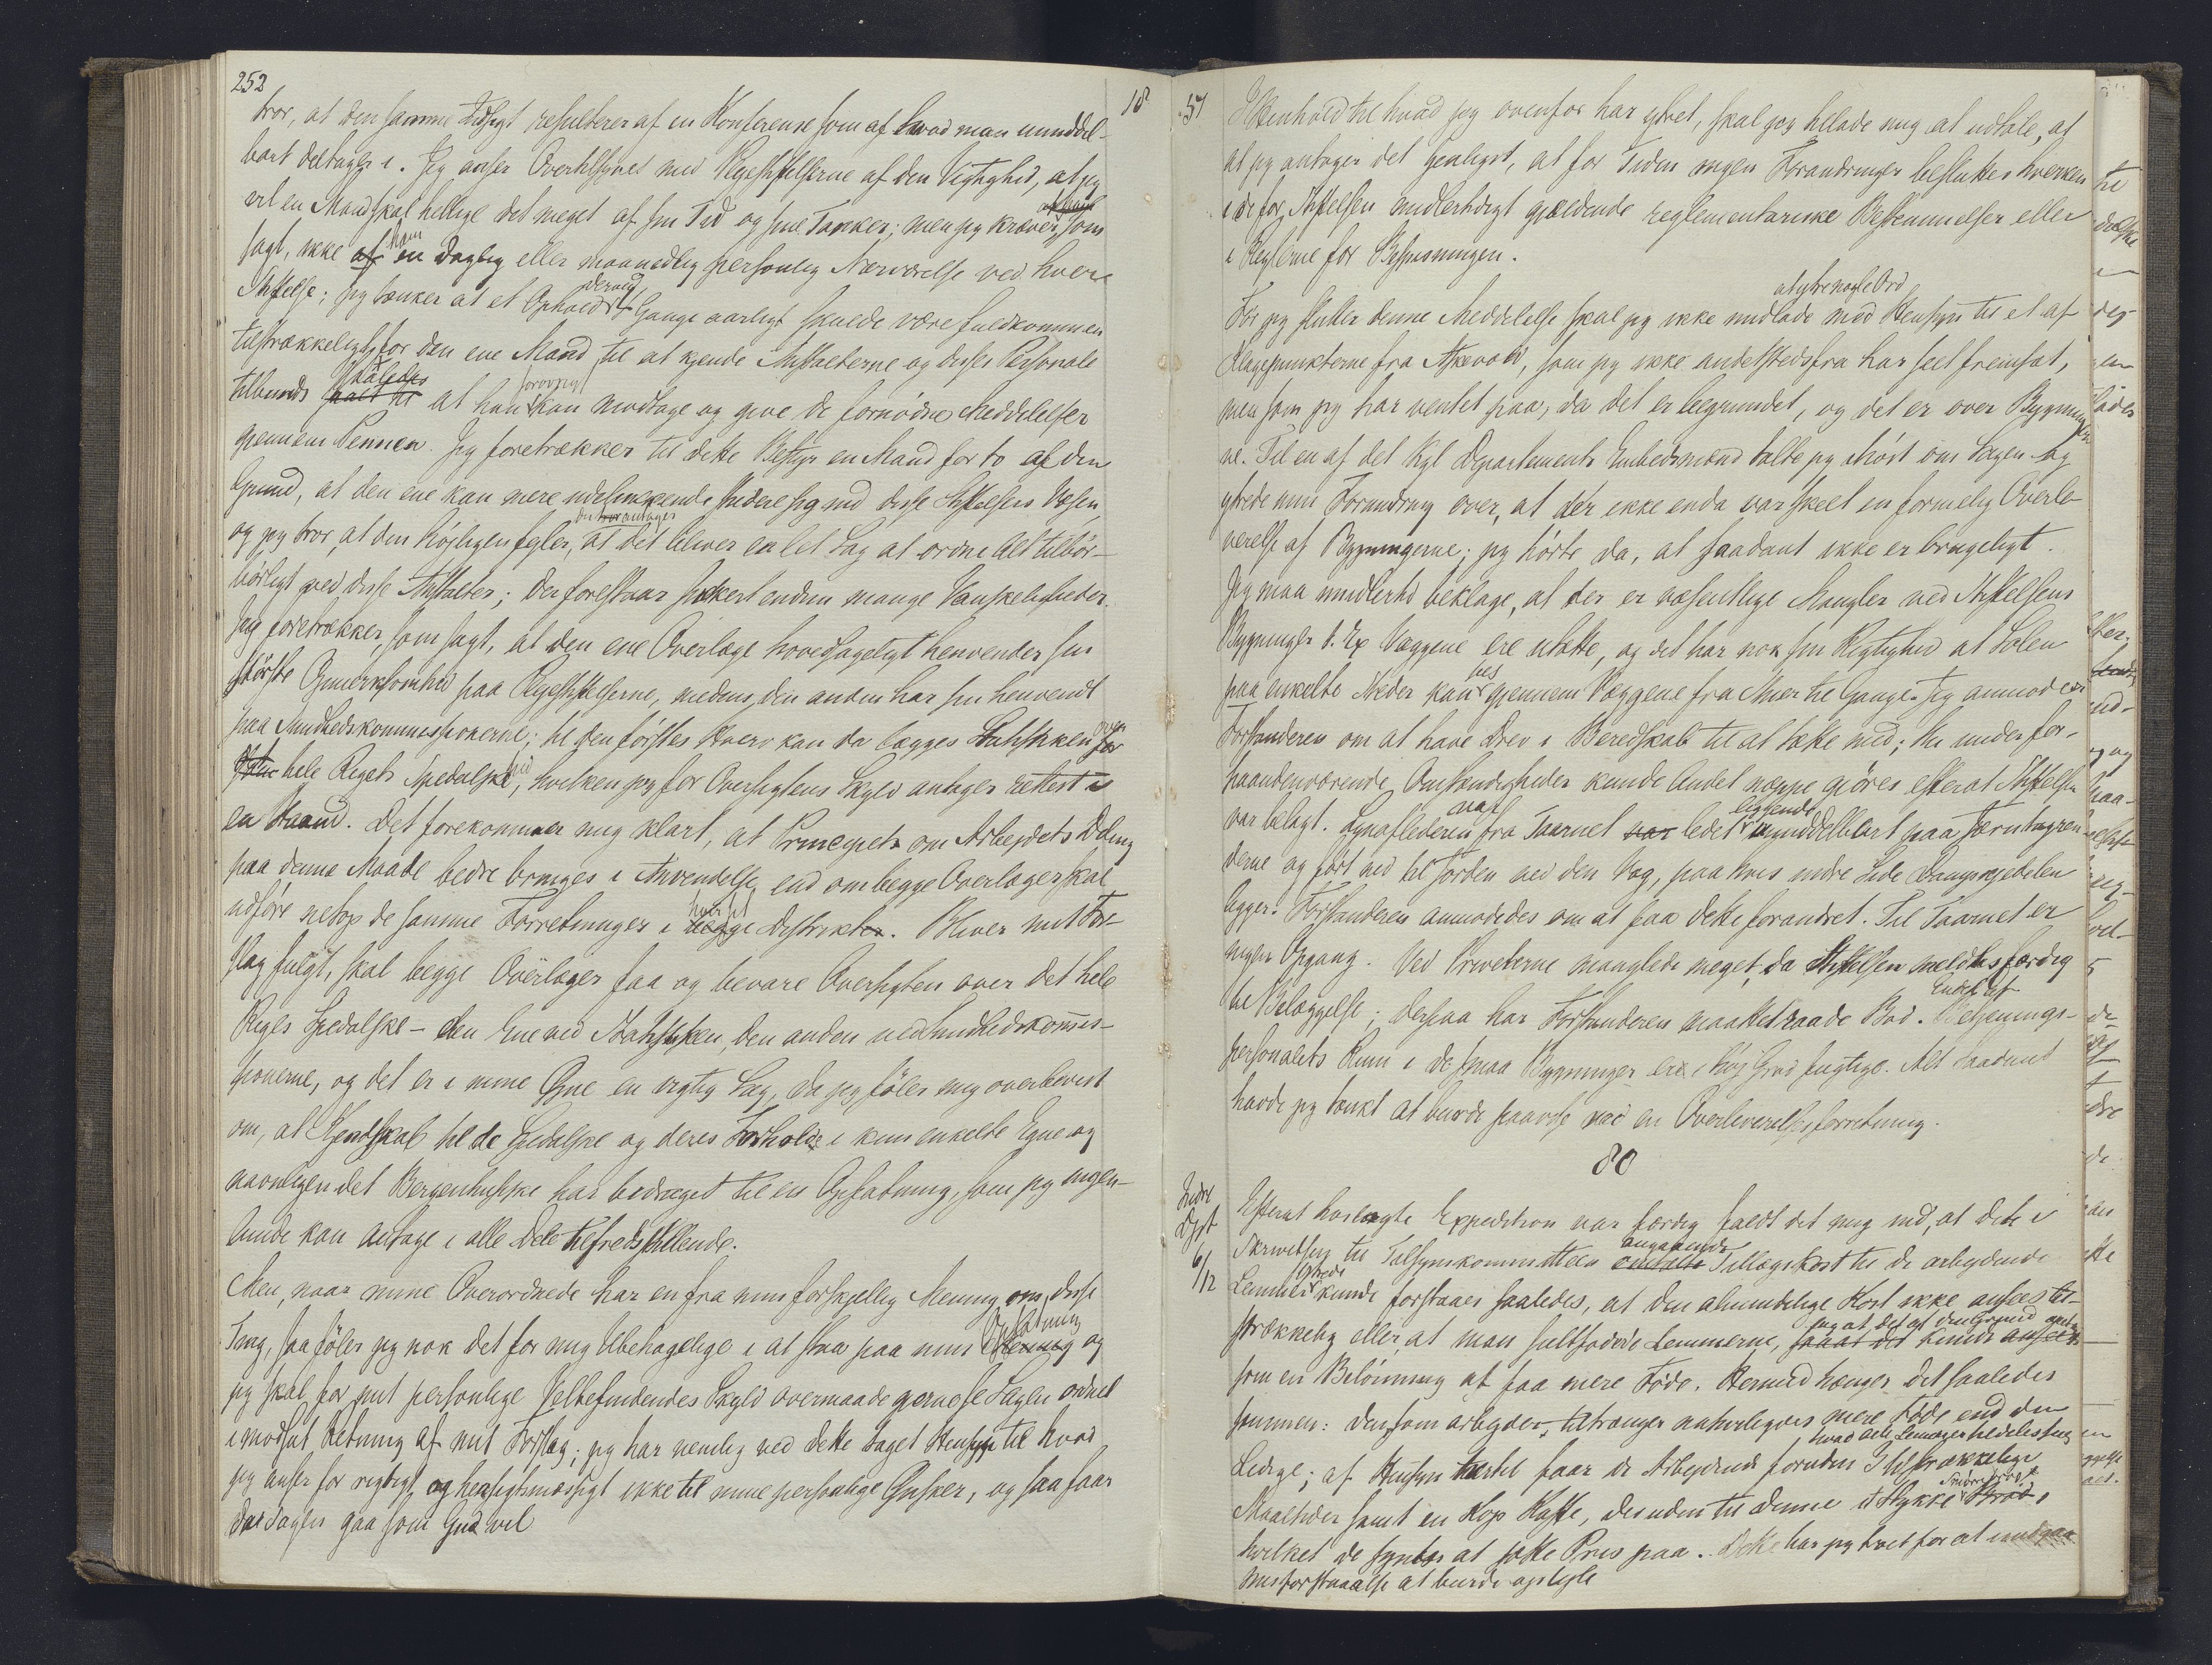 252
18
tror, at den samme Indsigt resulterer af en Konference som af hvad man umiddel-
bart deltager i. Jeg anser Overtilsynet med Plejestiftelserne af den Vigtighed, at jeg
vil en Mand skal hellige det meget af sin Tid og sine Tanker; men jeg kræver, som
sagt, ikke af ham en daglig eller maanedlig personlig Nærværelse ved hver
Stiftelse; jeg tænker at et Ophold derved Gange aarligt skulde være fuldkommen
tilstrækkeligt for den ene Mand til at kjende Anstalterne og disses Personale
tilbunds saaledes at han forøvrigt kan modtage og give de fornødne Meddelelser
gjennem Pennen. Jeg foretrækker til dette Bestyr en Mand for to af den
Grund, at den ene kan mere udelukkende studere sig ind disse Stiftelsers Væsen,
og jeg tror, at den højligen fejler, der antager at det bliver en let Sag at ordne Alt tilbør-
børligt ved disse Anstalter; der forestaar sikkert endnu mange Vanskeligheder.
Jeg foretrækker, som sagt, at den ene Overlæge hovedsageligt henvender sin
største Opmærksomhed paa Plejestiftelserne, medens den anden har sin henvendt
paa Sundhedskommissionerne; til den førstes Hverv kan da lægges Statistiken over
hele Rigets Spedalske, hvilken jeg for Oversigtens Skyld antager rettest i
en Haand. Det forekommer mig klart, at Principet om Arbejdets Deling
paa denne Maade bedre bringes i Anvendelse, end om begge Overlæger skal
udføre netop de samme Forretninger i hver sit Distrikt. Bliver mit For-
slag fulgt, skal begge Overlæger faa og bevare Oversigten over det hele
Riges Spedalske – den Ene ved Statistiken, den anden ved Sundhedskommis-
sionerne, og det er i mine Øjne en vigtig Sag, da jeg føler mig overbevist
om, at Kjendskab til de Spedalske og deres Forholde i kun enkelte Egne og
navnligen det Bergenhusiske har bedraget til en Opfatning, som jeg ingen-
lunde kan antage i alle Dele tilfredsstillende.
Men, naar mine Overordnede har en fra min forskjellig Mening om disse
Ting, saa føler jeg nok det for mig Ubehagelige i at staa paa min Opfatning og
jeg skal for mit personlige Velbefindendes Skyld overmaade gjerne se Sagen ordnet
i modsat Retning af mit Forslag; jeg har nemlig ved dette taget Hensyn til hvad
jeg anser for rigtigt og hensigtsmæssigt ikke til mine personlige Ønsker, og saa faar
da Sagen gaa som Gud vil
57
I Henhold til hvad jeg ovenfor har ytret, skal jeg tillade mig at udtale, at
at jeg antager det gavnligst, at for Tiden ingen Forandringer besluttes hverken
i de for Stiftelsen midlertidigt gjældende reglementariske Bestemmelser eller
i Reglerne for Bespisningen.
Før jeg slutter denne Meddelelse skal jeg ikke undlade at ytre nogle Ord med Hensyn til et af
Klagepunkterne fra Askevold, som jeg ikke andetstedsfra har seet fremsat,
men som jeg har ventet paa, da det er begrundet, og det er over Bygningen
ne. Til en af det Kgl Departements Embedsmænd talte jeg ihøst om Sagen og
ytrede min Forundring over, at der ikke enda var skeet en formelig Overle-
verelse af Bygningerne; jeg hørte da, at saadant ikke er brugeligt.
Jeg maa imidlertid beklage, at der er væsentlige Mangler ved Stiftelsens
Bygninger t. Ex Væggene ere utætte, og det har nok sin Rigtighed at Solen
paa enkelte Steder kan sees gjennem Væggene fra Værelser til Gange. Jeg anmoder
Forstanderen om at have Drev i Beredskab til at tætte med; thi under for-
haandenværende Omstændigheder kunde Andet næppe gjøres efterat Stiftelsen
var belagt. Lynaflederen fra Taarnet var ledet liggende umiddelbart paa Jerntagren-
derne og ført ned til Jorden ved den Væg, paa hvis indre Side Dampkjedelen
ligger. Forstanderen anmodedes om at faa dette forandret. Til Taarnet er
ingen Opgang. Ved Priveterne manglede meget, da Stiftelsen meldtes færdig
til Belæggelse; derpaa har Forstanderen maattet raade Bod. Endel af Betjenings-
personalets Rum i de smaa Bygninger ere i høj Grad fugtige. Alt saadant
havde jeg tænkt at burde paavises ved en Overleverelsesforretning.
80
Indre
Dpt
6/12
Efterat hoslagte Expedition var færdig faldt det mig ind, at det i
Skrivelsen til Tilsynskommitteen angaaende Tillægskost til de arbejdende
Lemmer ytrede kunde forstaaes saaledes, at den almindelige Kost ikke ansees til-
strækkelig eller, at man sultfødede Lemmerne, saa at det af den Grund kunde ansees
som en Belønning at faa mere Føde. Hermed hænger det saaledes
sammen: den, som arbejder, tiltrænger naturligvis mere Føde end den
Ledige; af Hensyn hertil faar de Arbejdende foruden hvad alle Lemmer meddeles tilstrækkelige
Maaltider samt en Kop Kaffe, desuden til denne et Stykke Brød,
hvilket de synes at sætte Pris paa. Dette har jeg troet for at undgaa
Misforstaaelse at burde oplyse